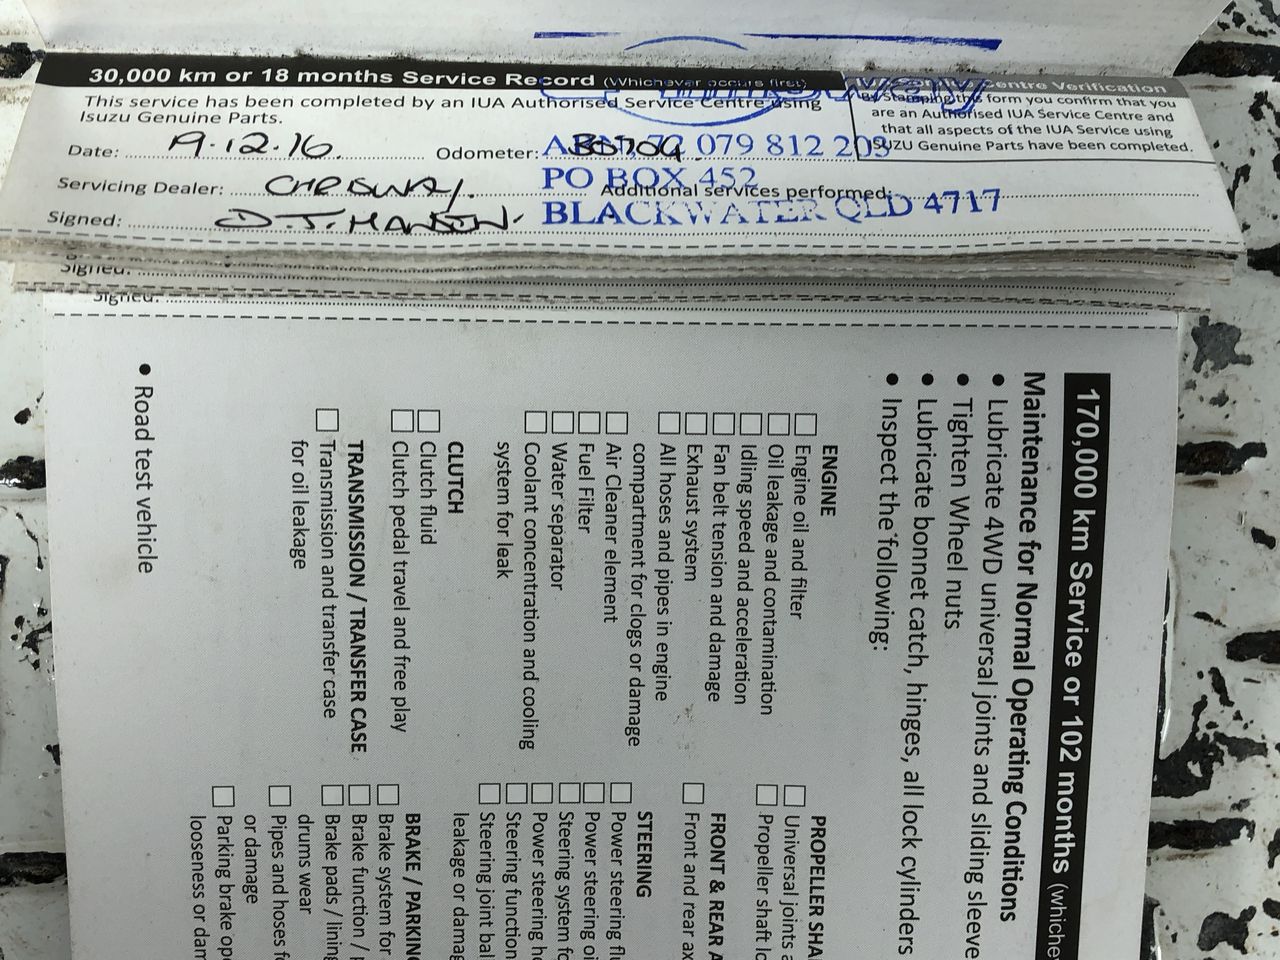 30,000 km or 18 months Service Record (Whichever occurs first)
Centre Verification
This service has been completed by an IUA Authorised Service Centre using
Isuzu Genuine Parts.
By Stamping this form you confirm that you
are an Authorised IUA Service Centre and
that all aspects of the IUA Service using
ISUZU Genuine Parts have been completed.
Date: 19.12.16.
Odometer: 30704
72 079 812 203
Servicing Dealer:
PO BOX 452
Additional services performed:
Signed: D.J. HANSEN.
BLACKWATER QLD 4717
Signed:
Signed:
170,000 km Service or 102 months (whiche
Maintenance for Normal Operating Conditions
• Lubricate 4WD universal joints and sliding sleeve
• Tighten Wheel nuts
• Lubricate bonnet catch, hinges, all lock cylinders
• Inspect the following:
ENGINE
Engine oil and filter
Oil leakage and contamination
Idling speed and acceleration
Fan belt tension and damage
Exhaust system
All hoses and pipes in engine
compartment for clogs or damage
Air Cleaner element
Fuel Filter
Water separator
Coolant concentration and cooling
system for leak
CLUTCH
Clutch fluid
Clutch pedal travel and free play
TRANSMISSION / TRANSFER CASE
Transmission and transfer case
for oil leakage
PROPELLER SHA
Universal joints a
Propeller shaft lo
FRONT & REAR A
Front and rear ax
STEERING
Power steering flu
Power steering oi
Steering system fo
Power steering ho
Steering function
Steering joint bal
leakage or damag
BRAKE / PARKING
Brake system for
Brake function /
Brake pads / lining
drums wear
Pipes and hoses f
or damage
Parking brake ope
looseness or dam
• Road test vehicle